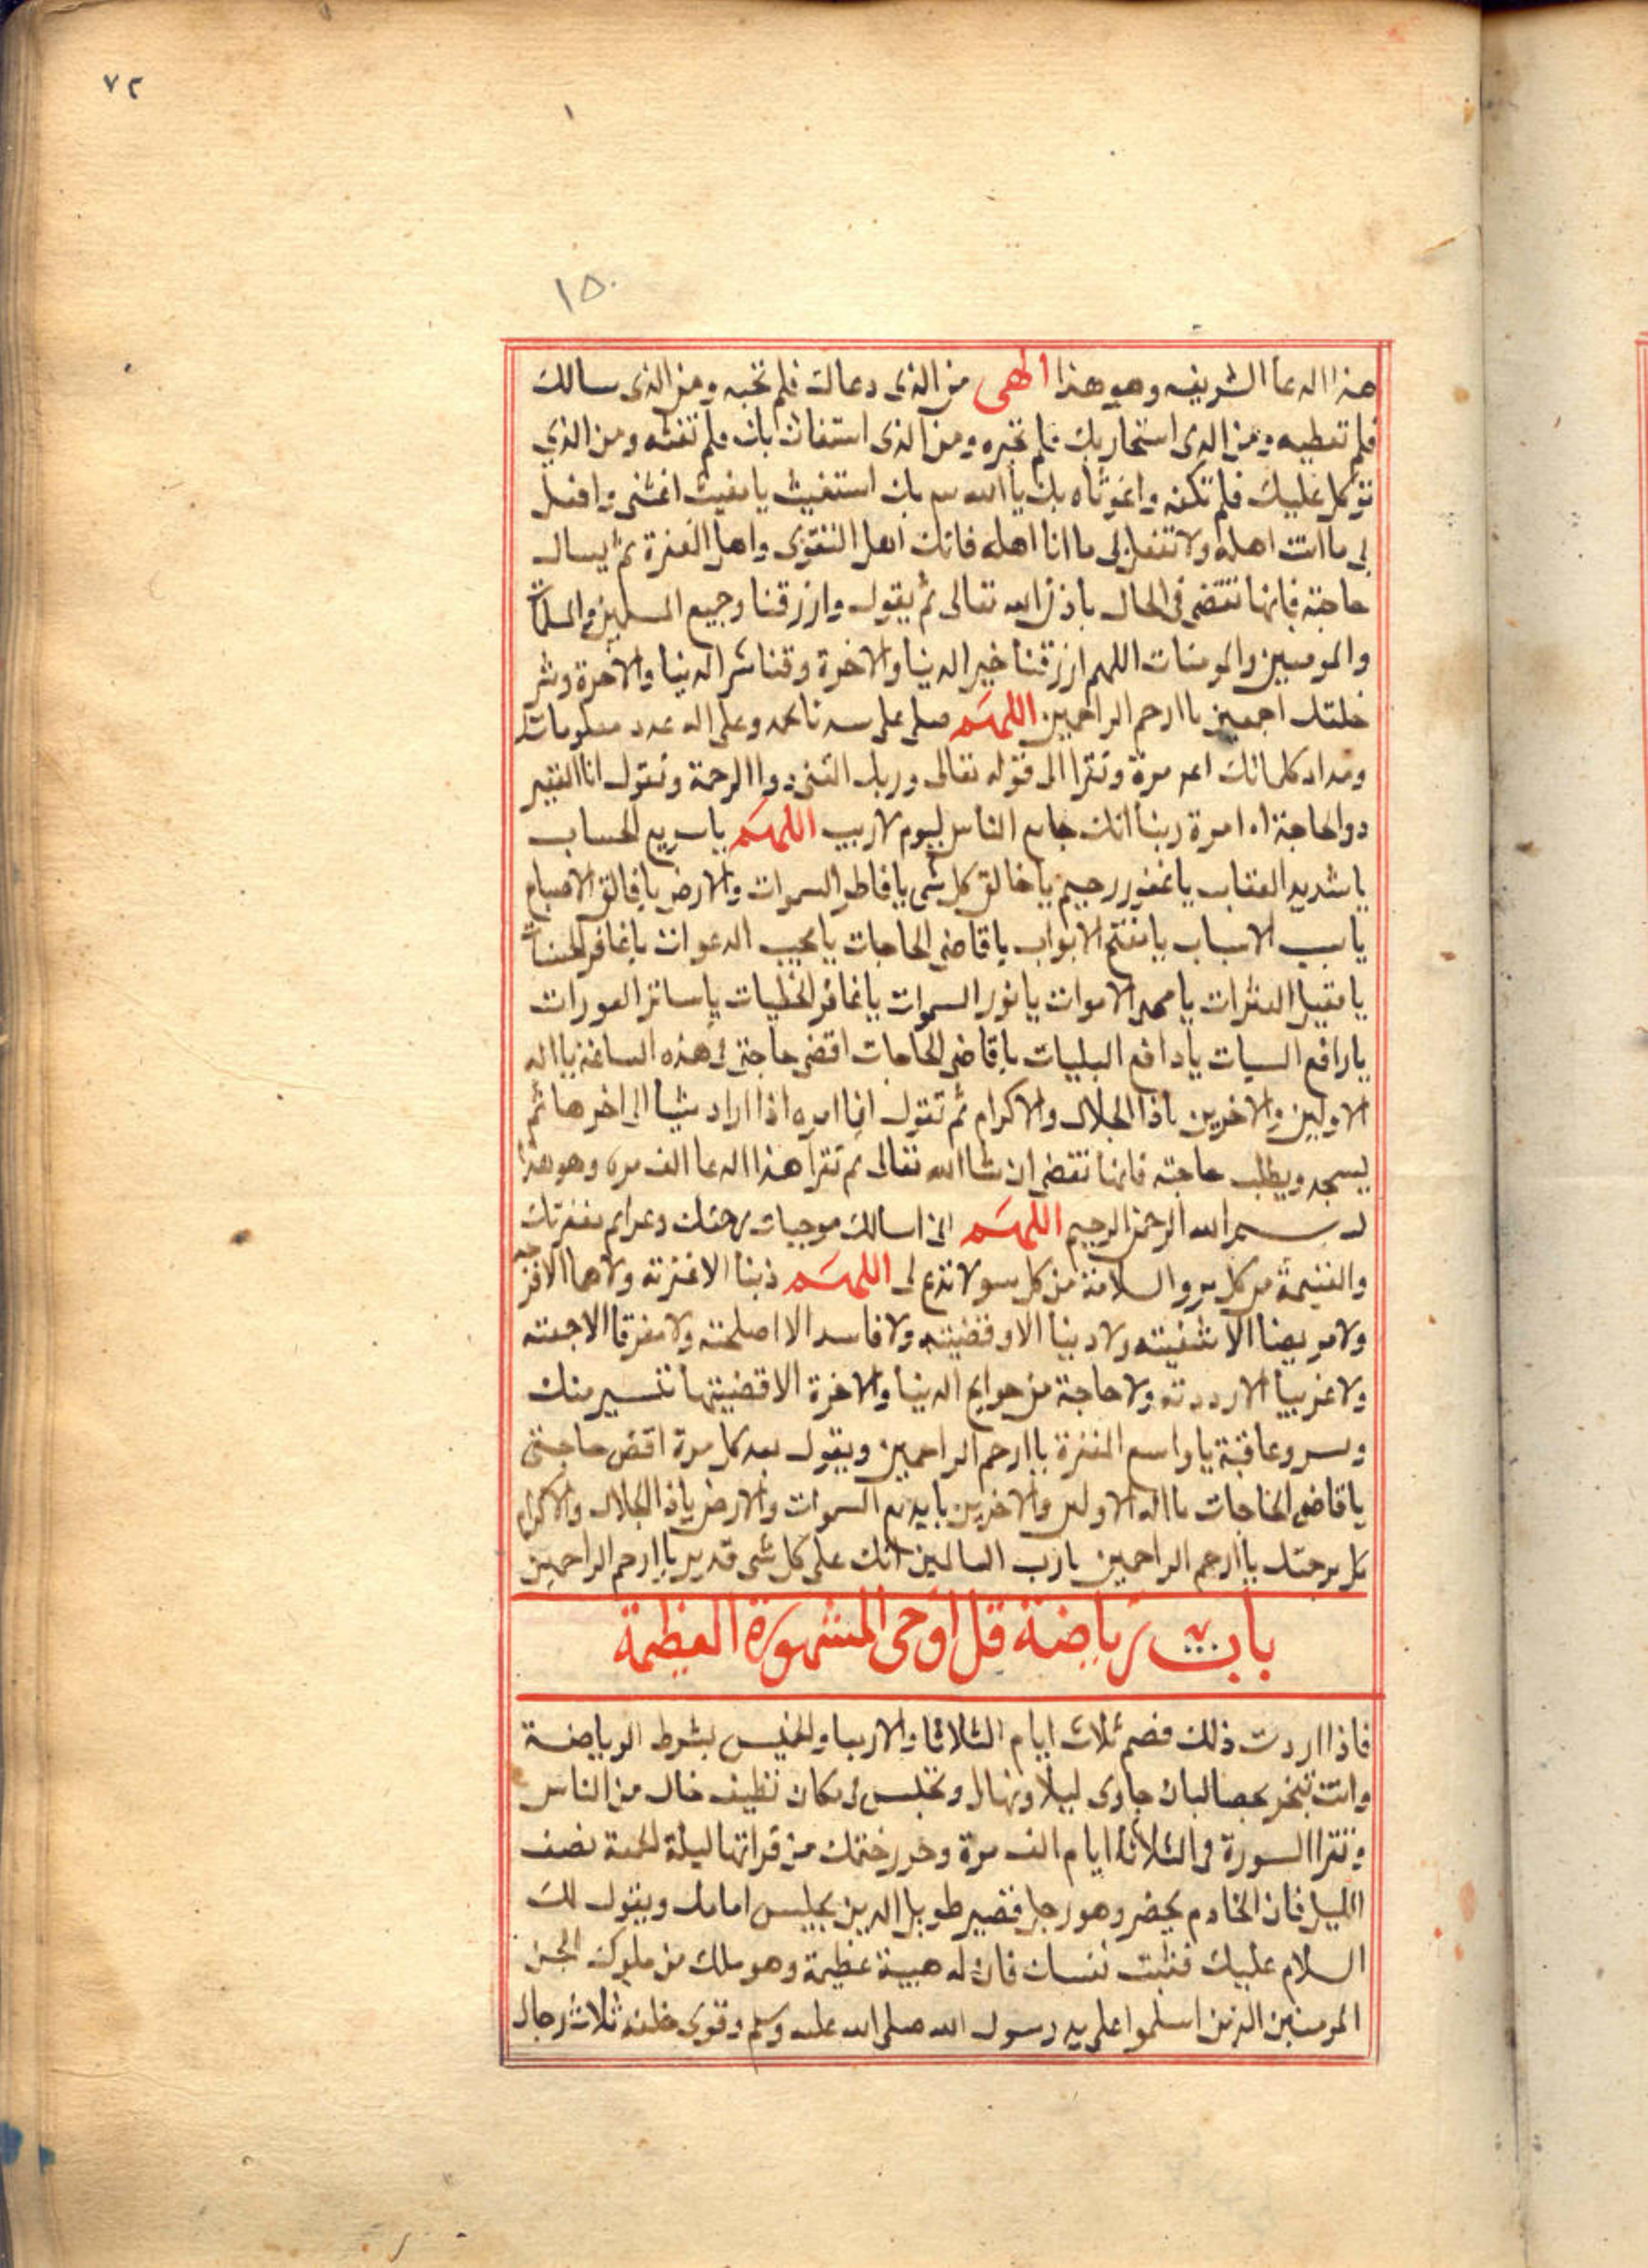 ٧٢
١
١٥٠
هذا الدعا الشريف وهو هذا الهى من الذى دعاك فلم تجبه ومن الذى سالك
فلم تعطيه ومن الذى استجار بك فلم تجيره ومن الذى استغاث بك فلم تغثه ومن الذي
توكل عليك فلم تكفه واغوثاه بك يا الله بك استغيث يا مغيث اغثنى وافعل
بى ما انت اهله ولا تفعل بى ما انا اهله فانك اهل التقوى واهل المغفرة ثم يسال
حاجته فانها تقضى فى الحال باذن الله تعالى ثم يقول وارزقنا وجميع المسلمين والمسلمات
والمومنين والمومنات اللهم ارزقنا خير الدنيا والاخرة وقنا شر الدنيا والاخرة وشر
خلقك اجمعين يا ارحم الراحمين اللهم صلى على سيدنا محمد وعلى اله عدد معلوماتك
ومداد كلماتك مرة وتقرا الى قوله تعالى وربك الغنى ذوا الرحمة وتقول انا الفقير
ذو الحاجة مرة ربنا انك جامع الناس ليوم لا ريب اللهم يا سريع الحساب
يا شديد العقاب يا غفور رحيم يا خالق كل شى يا فاطر السموات والارض يا فالق الاصباح
يا مسبب الاسباب يا مفتح الابواب يا قاضى الحاجات يا مجيب الدعوات يا غافر
يا مقيل العثرات يا محيى الاموات يا نور السموات يا غافر الخطيات يا ساتر العورات
يا رافع السيات يا دافع البليات يا قاضى الحاجات اقضى حاجتى فى هذه الساعة يا اله
الاولين والاخرين يا ذا الجلال والاكرام ثم تقول انما امره اذا اراد شيا الى اخرها ثم
يسجد ويطلب حاجته فانها تقضى ان شا الله تعالى ثم تقرا هذا الدعا الف مره وهو هذا
بسم الله الرحمن الرحيم اللهم انى اسالك موجبات رحمتك وعزايم مغفرتك
والغنيمة من كل بر والسلامة من كل سو لا تدع لى اللهم ذنبا الا غفرته ولا هما الا فرجته
ولا مريضا الا شفيته ولا دينا الا وقضيته ولا فاسدا الا اصلحته ولا مفرقا الا جمعته
ولا غريبا الا رددته ولا حاجة من حوايج الدنيا والاخرة الا قضيتها بتيسير منك
ويسر وعافية يا واسع المغفرة يا ارحم الراحمين ويقول بعد كل مرة اقض حاجتى
يا قاضى الحاجات يا اله الاولين والاخرين يا بديع السموات والارض يا ذا الجلال والاكرام
برحمتك يا ارحم الراحمين يا رب العالمين انك على كل شى قدير يا ارحم الراحمين
باب رياضة قل اوحى المشهورة العظيمة
فاذا اردت ذلك فصم ثلاث ايام الثلاثا والاربا والخميس بشرط الرياضة
وانت تبخر بحصالبان جاوى ليلا ونهارا وتجلس فى مكان نظيف خال من الناس
وتقرا السورة فى الثلاثة ايام الف مرة وحرر ختمك من قراتها ليلة الجمعة نصف
الليل فان الخادم يحضر وهو رجل قصير طويل اليدين يجلس امامك ويقول لك
السلام عليك فثبت نفسك فان له هيبة عظيمة وهو ملك من ملوك الجن
المومنين الذين اسلموا على يد رسول الله صلى الله عليه وسلم وقوى خلفه ثلاث رجال